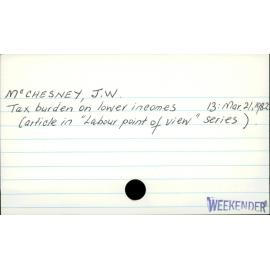 McCHESNEY, J.W.
Tax burden on lower incomes 13: Mar. 21, 1982
(article in "Labour point of view" series).
WEEKENDER